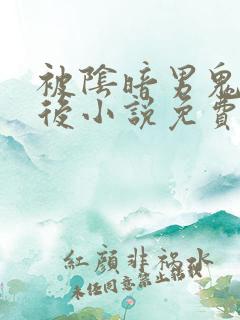 被陰暗男鬼
後小說免費
紅顏非禍水
未任同意禁止轉載